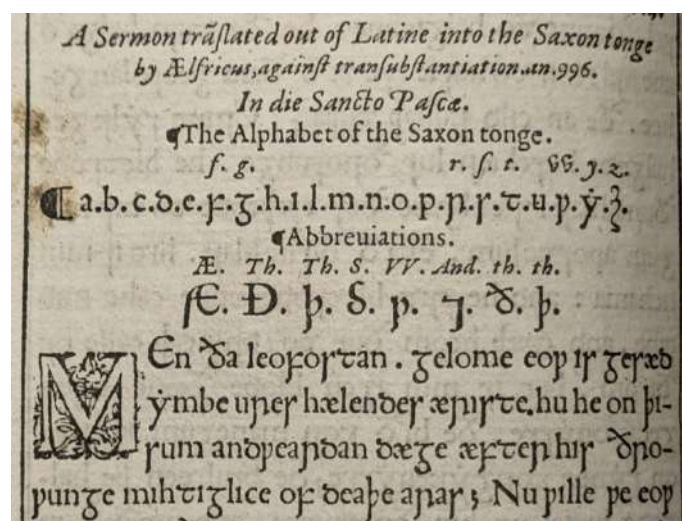 A Sermon trãſlated out of Latine into the Saxon tonge
by Ælfricus, againſt tranſubſtantiation.an.996.
In die Sancto Paſcæ.
¶The Alphabet of the Saxon tonge.
f. g. r. ſ. t. VV. y. z.
¶ a.b.c.d.e.f.g.h.ı.l.m.n.o.p.r.s.t.u.ƿ.ẏ.z.
¶Abbreuiations.
Æ. Th. Th. S. VV. And. th. th.
Æ. Ð. þ. S. ƿ. ⁊. ð. þ.
MEn ða leofostan . gelome eoƿ ıs gesæd
ẏmbe ures hælendes æriste. hu he on þı-
sum andƿeardan dæge æfter hıs ðro-
ƿunge mıhtıglıce of deaþe aras ; Nu ƿılle ƿe eoƿ